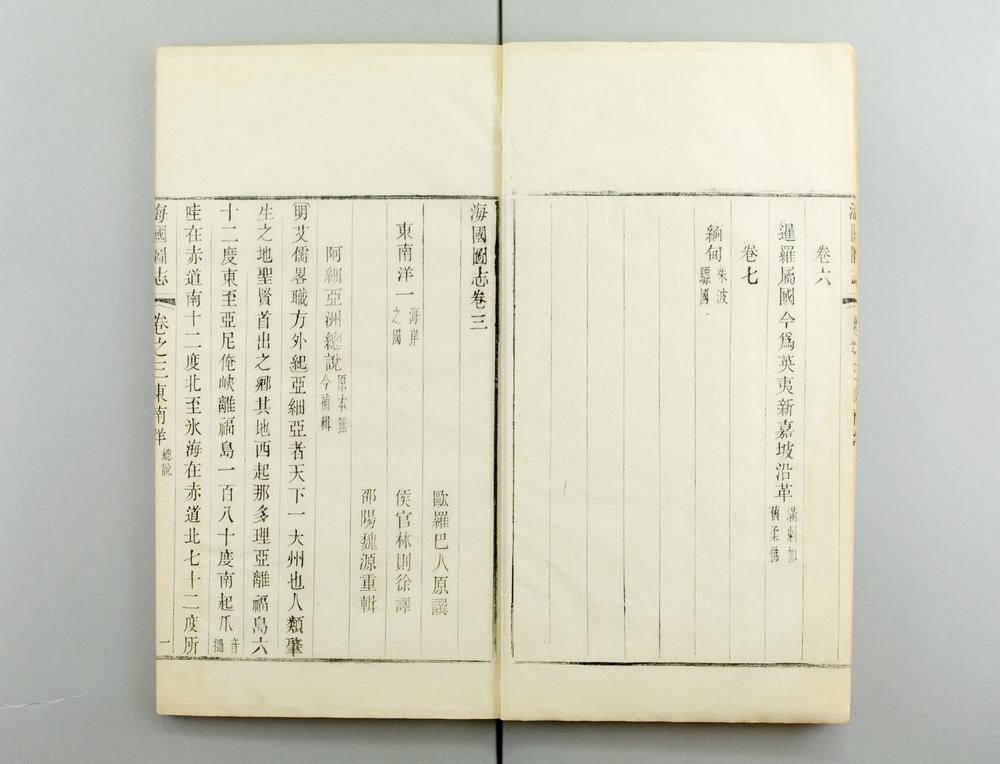 卷六
暹羅屬國今爲英夷新嘉坡沿革 滿剌加 舊柔佛
卷七
緬甸 朱波 驃國
海國圖志卷三
歐羅巴人原譔
東南洋一 海岸之國
侯官林則徐譯
邵陽魏源重輯
阿細亞洲總說 原本無今補輯
明艾儒畧職方外紀亞細亞者天下一大州也人類肇
生之地聖賢首出之鄉其地西起那多理亞離福島六
十二度東至亞尼俺峽離福島一百八十度南起爪 音撾
哇在赤道南十二度北至氷海在赤道北七十二度所
海國圖志 卷之三東南洋 總說 一